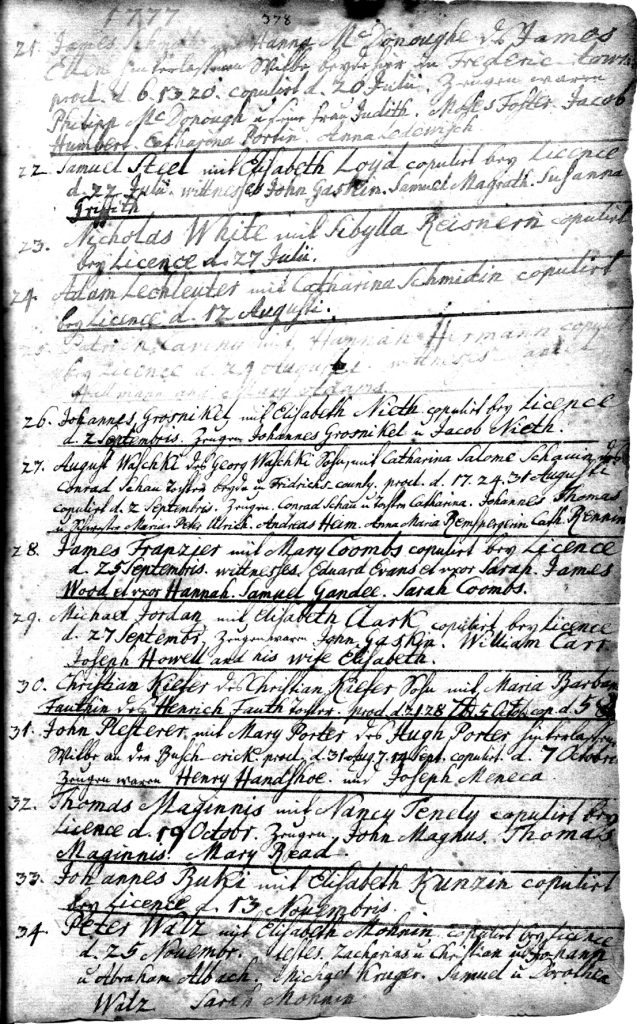 1777
378
21. James Schmitt mit Hanna McDonoughe des James
hinterlassenen Witbe bey in Frederic town
procl. d. 6. 13. 20. copulirt d. 20 Julii. Zeugen waren
Philipp McDonough u seine frau Judith. Moses Foster. Jacob
Humbert. Catharona Portin. Anna Ledewisch
22. Samuel Steel mit Elisabeth Loyd copulirt bey Licence
d. 22 Julii. wittnesses John Gaskin. Samuel Magrath. Susanna
Griffith
23. Nicholas White mit Sibylla Reisnern copulirt
bey Licence d. 27 Julii.
24. Adam Lechleuter mit Catharina Schmidin copulirt
bey Licence d. 12 Augusti.
25. Patrick mit Hannah Hermann copulirt
bey Licence d. 29 Augusti. witneses
Hermann and Adams
26. Johannes Grosnikel mit Elisabeth Nieth copulirt bey Licence
d. 2 Septembris. Zeugen Johannes Grosnikel u Jacob Nieth.
27. August Waschki des Georg Waschki Sohn mit Catharina Salome Schauin des
Conrad Schau Tochter beyde u Fridrichs county. procl. d. 17. 24. 31 August
copulirt d. 2 Septembris. Zeugen Conrad Schau u Tochter Catharina. Johannes Thomas
u Schwester Maria. Peter Ulrich. Andreas Hem. Anna Maria Rempergerin Cath. Rennin
28. James Franzier mit Mary Coombs copulirt bey Licence
d. 25 Septembris. wittnesses. Eduard Evans et uxor Sarah. James
Wood et uxor Hannah. Samuel Gandee. Sarah Coombs.
29. Michael Jordan mit Elisabeth Clark copulirt bey Licence
d. 27 Septembr. Zeugen waren John Gaskin. William Carr
Joseph Howell and his wife Elisabeth.
30. Christian Kiefer des Christian Kiefer Sohn mit Maria Barbara
Fauthin des Henrich Fauth tochter. procl. d. 21 28 5 Octob. cop. d. 5
31. John Plesterer mit Mary Porter des Hugh Porter hinterlassen
Witbe an der Busch-crick. procl. d. 31 Aug. 7. 14 Sept. copulirt d. 7 Octobris
Zeugen waren Henry Handshoe und Joseph Meneca
32. Thomas Maginnis mit Nancy Tenely copulirt bey
Licence d. 19 Octobr. Zeugen, John Magnus. Thomas
Maginnis. Mary Read
33. Johannes Buki mit Elisabeth Kunzin copulirt
bey Licence d. 13 Novembris.
34. Peter Walz mit Elisabeth Mohnin copulirt bey Licence
d. 25 Novembr. testes. Zacharias u Christian u Johann
u Abraham Albach. Michael Kruger. Samuel u Dorothea
Walz Sarah Mohnin